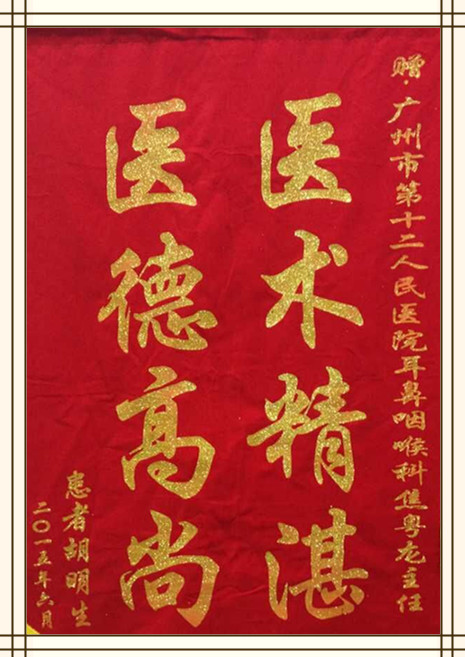 赠·广州市第十二人民医院耳鼻咽喉科焦粤龙主任
医术精湛
医德高尚
患者胡明生
二〇一五年六月